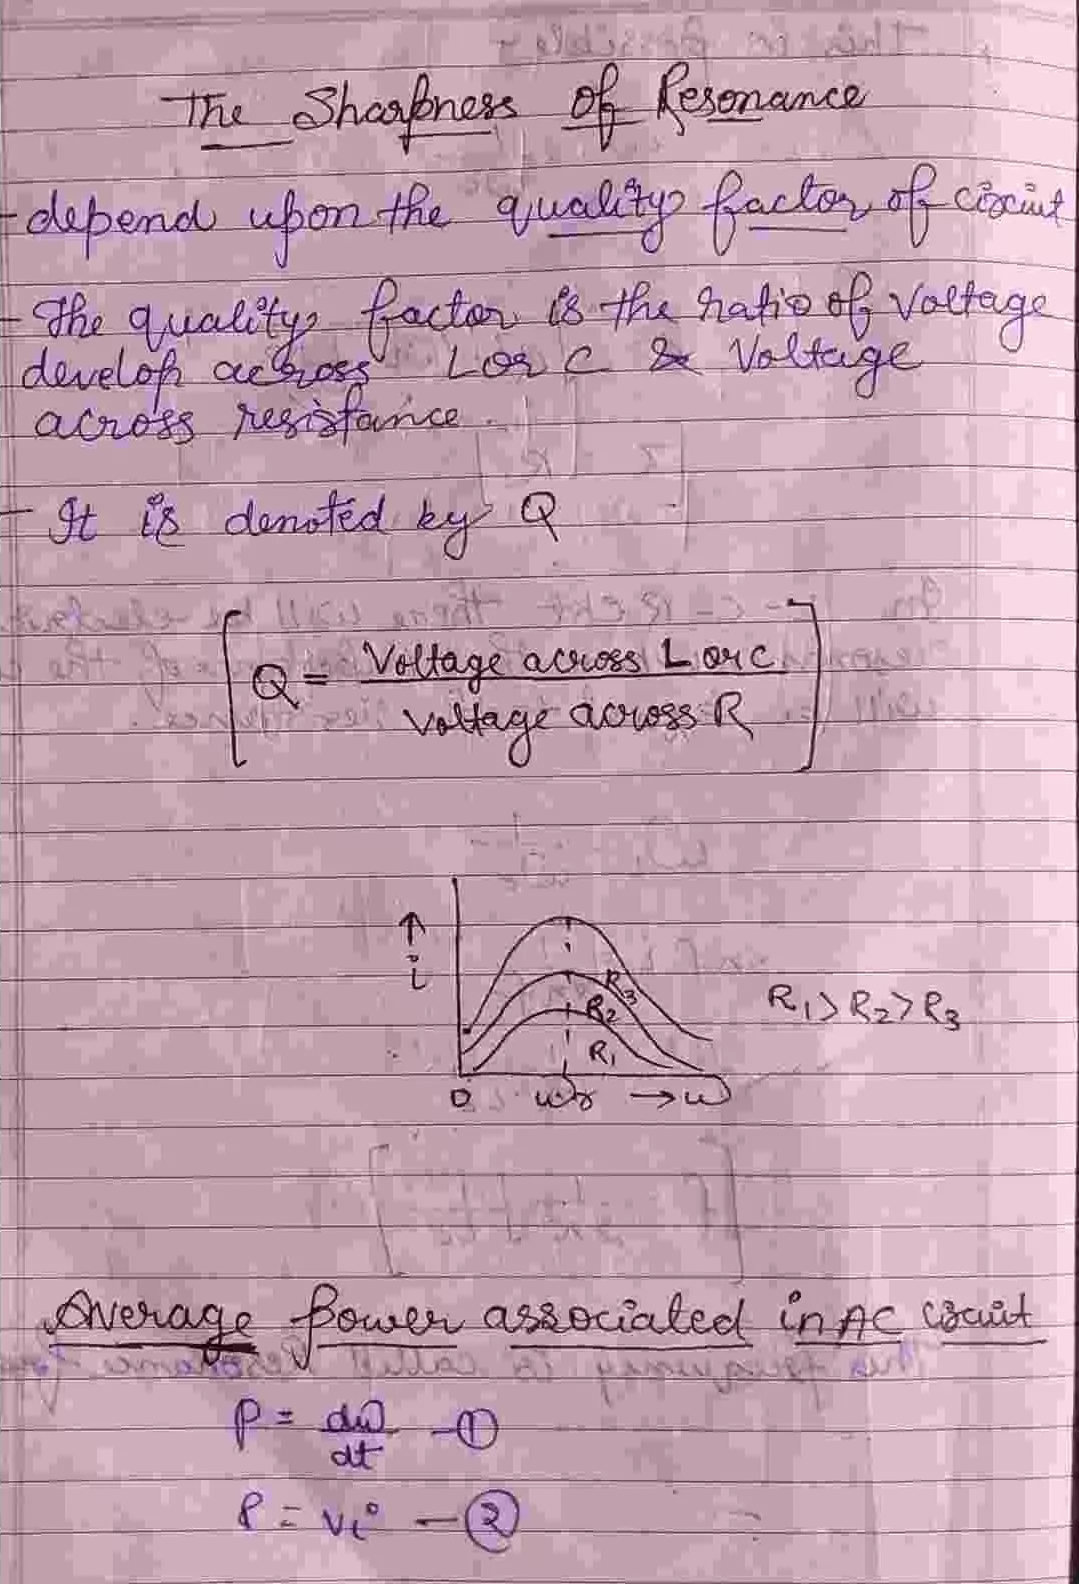 The Sharpness of Resonance
- depend upon the quality factor of circuit
- The quality factor is the ratio of Voltage
develop across L or C & Voltage
across resistance.
- It is denoted by Q
[Q = Voltage across L or C / Voltage across R]
↑
i
R3
R2
R1
R1 > R2 > R3
0 ωr → ω
Average power associated in AC circuit
P = dω/dt - ①
P = Vi - ②